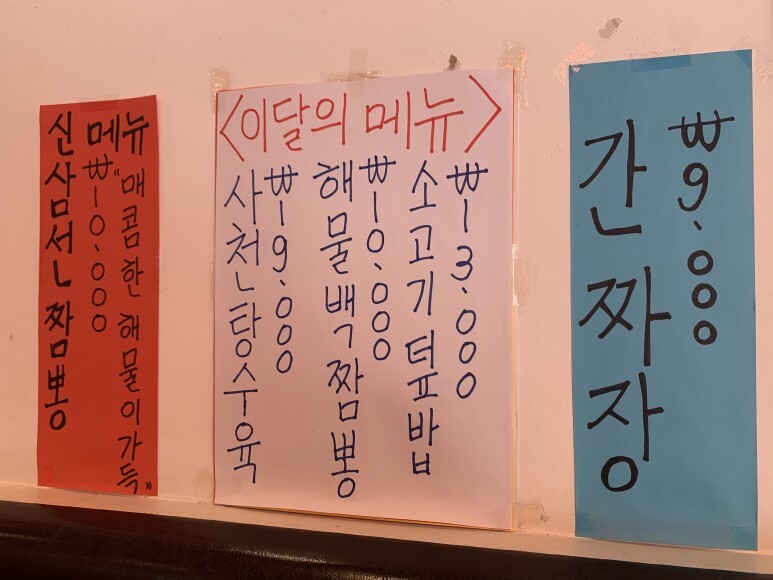 신 메뉴
삼선짬뽕
₩10.000
"매콤한 해물이가득"
<이달의 메뉴>
사천탕수육
₩19.000
해물백짬뽕
₩10.000
소고기덮밥
₩13.000
간짜장
₩9.000